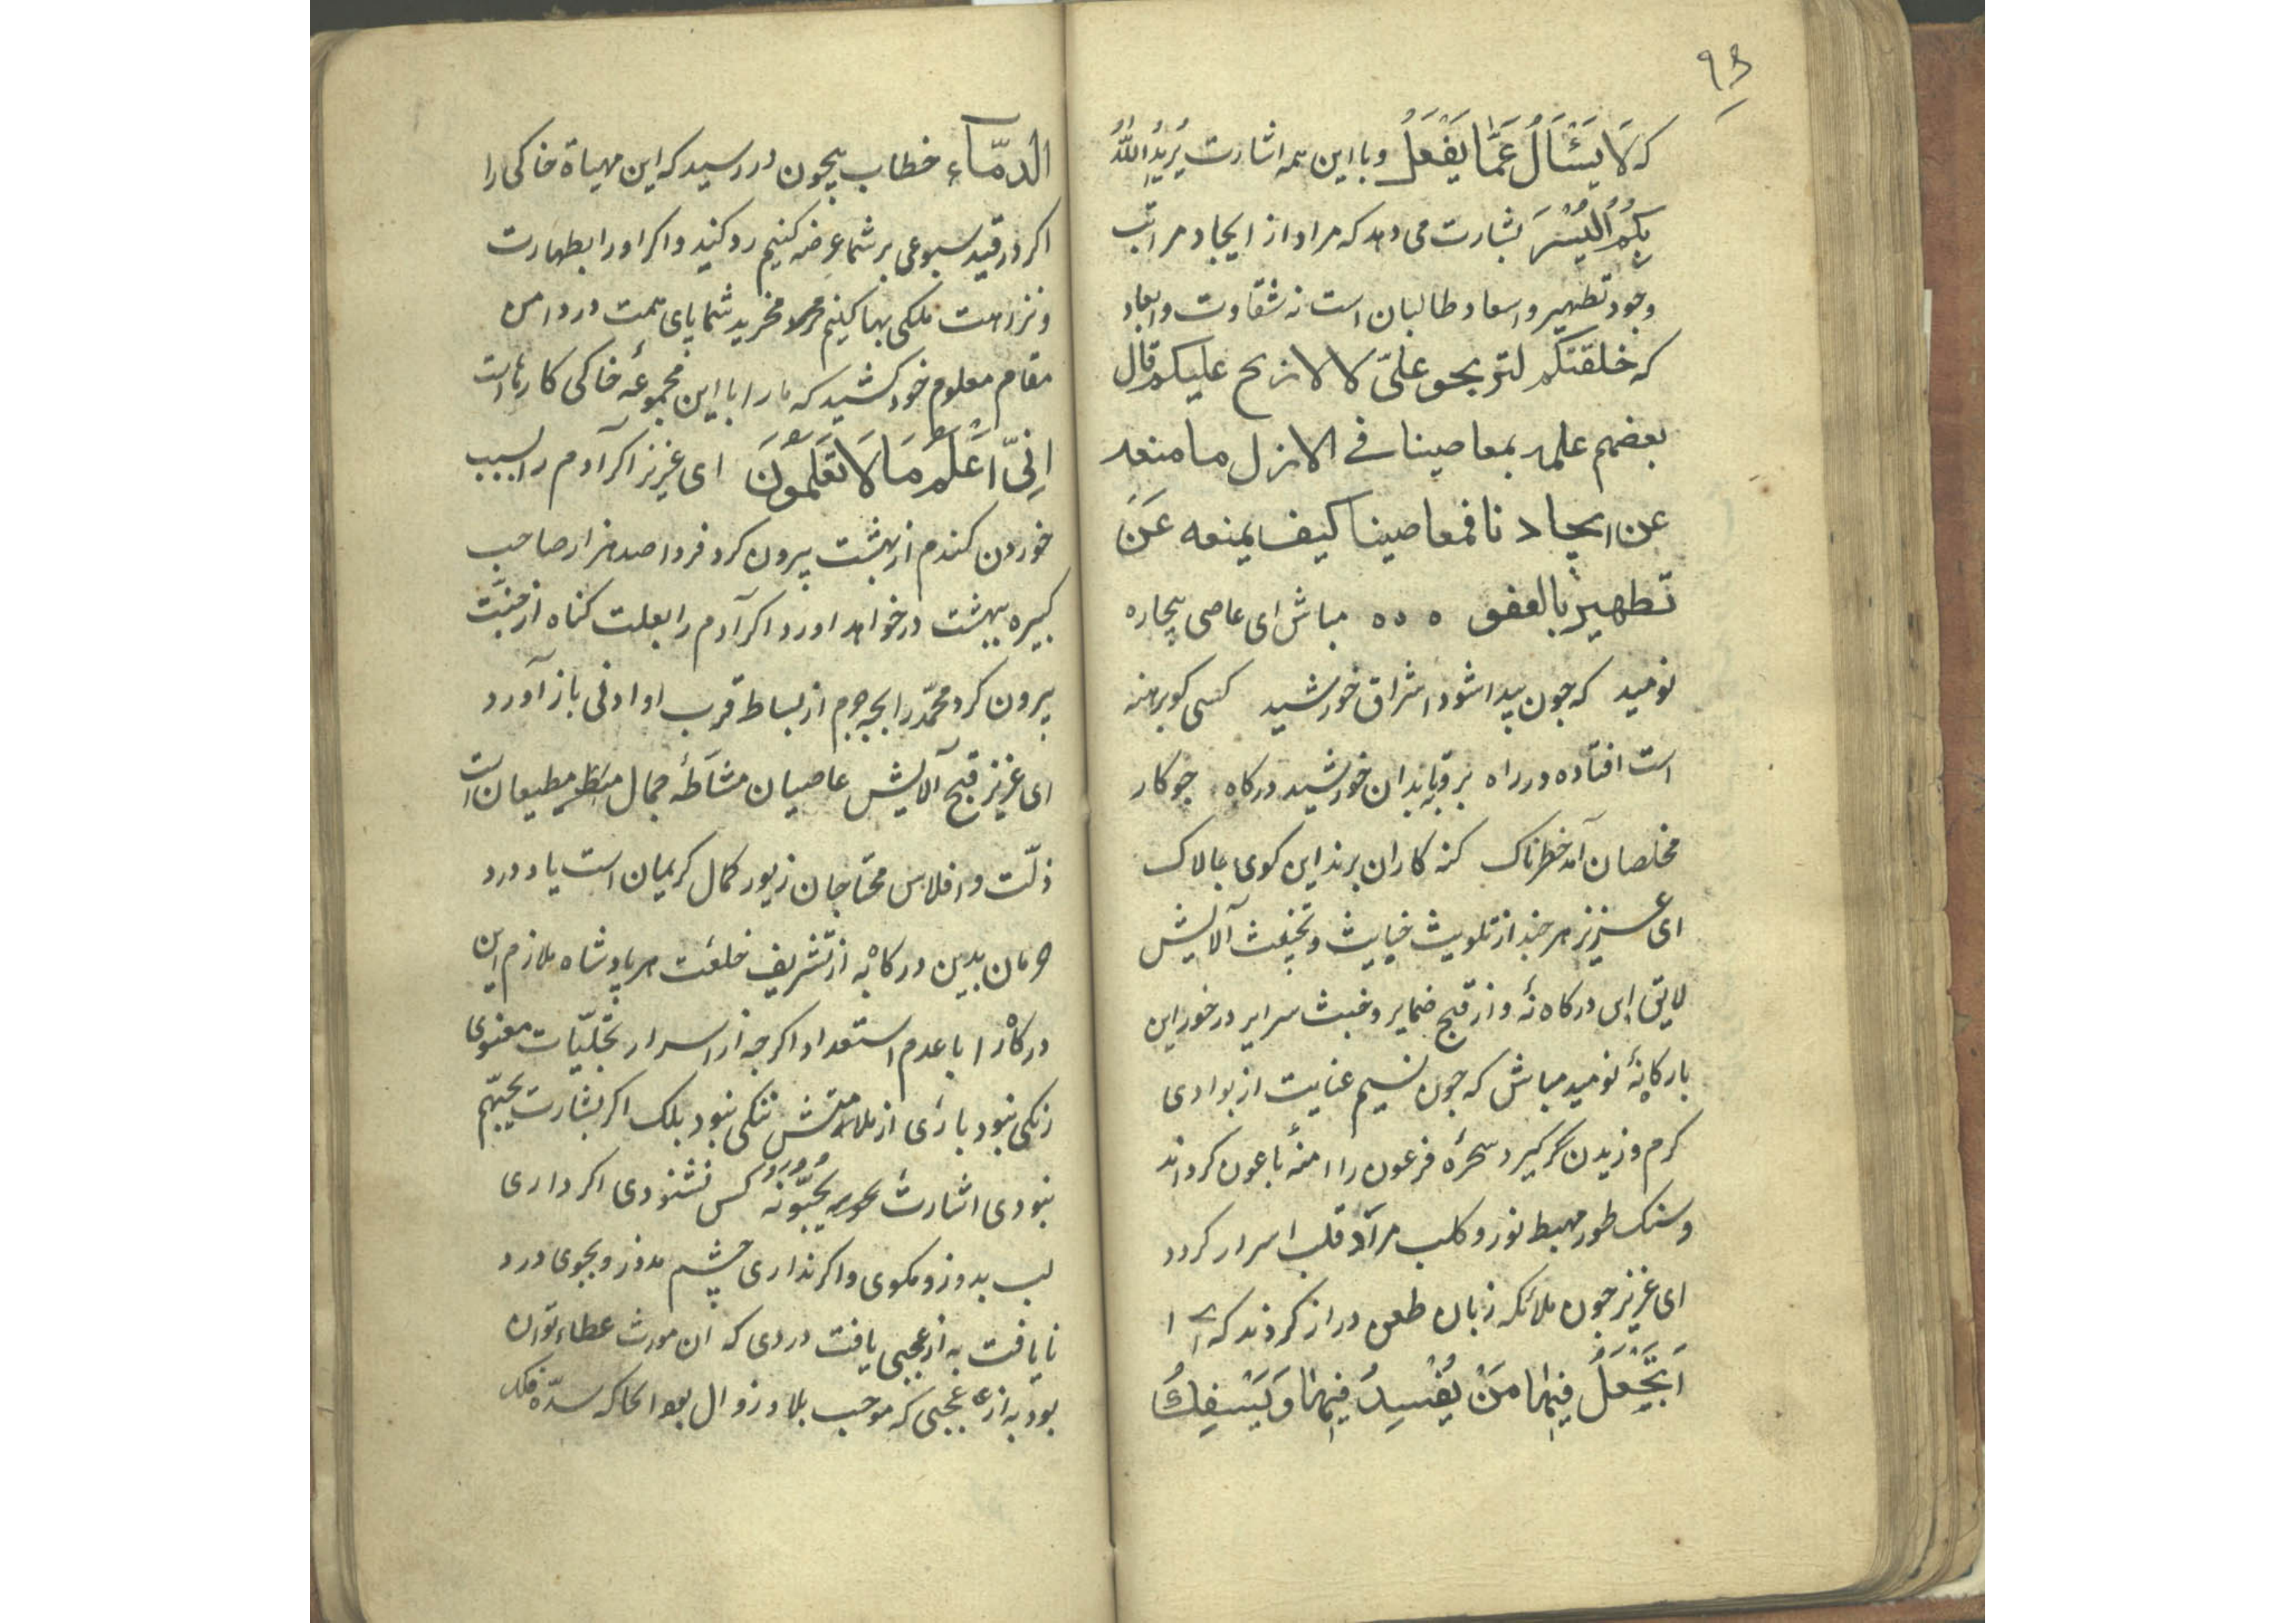 ۹۳
که لَا يُسْئَالُ عَمَّا يَفْعَلُ وبا این همه اشارت يُرِيدُ اللّٰهُ
بِكُمُ الْيُسْرَ بشارت می دهد که مراد از ایجاد مراتب
وجود تطهیر واسعاد طالبان است نه شقاوت وابعاد
که خلقتكم لتربحو علىّ لا لاربح عليكم قال
بعضهم علمه بمعاصينا فى الازل ما منعه
عن ایجادنا فمعاصينا كيف يمنعه عَنَ
تطهيرنا بالعفو ٥ ٥٥ مباش ای عاصی بیچاره
نومید که چون پیدا شود اشراق خورشید کسی کو برهنه
است افتاده در راه برو تابد ان خورشید درکاه جو کار
مخلصان آمد خطرناک کنه کاران برند این کوی چالاک
ای عزیز هر چند از تلویث خبایث و آلایش
لایق این درکاه نهٔ واز قبح ضمایر وخبث سرایر در خور این
بارکاه نهٔ نومید مباش که چون نسیم عنایت از بوادی
کرم وزیدن کیرد سحرهٔ فرعون را امنهٔ با عون کرداند
وسنک طور مهبط نور وکلب مرآة قلب اسرار کردد
ای عزیز چون ملائکه زبان طعن دراز کردند که
اَتَجْعَلُ فِيهَا مَنْ يُفْسِدُ فِيهَا وَيَسْفِكُ
الدمّآءَ خطاب بیچون در رسید که این مهیاة خاکی را
اکر در قید سبوعی بر شما عرضه کنیم رد کنید واکر او را بطهارت
ونزاهت ملکی بها کنیم مخرید شما پای همت در دامن
مقام معلوم خود کشید که ما را با این مجموعهٔ خاکی کارهاست
اِنّىِ اَعْلَمُ مَا لَا تَعْلَمُونَ ای عزیز اکر آدم را بسبب
خوردن کندم از بهشت بیرون کرد فردا صد هزار صاحب
کبیره ببهشت در خواهد اورد واکر آدم را بعلت کناه از جنّت
بیرون کرد محمّد را بچه جرم از بساط قرب او ادنی باز آورد
ای عزیز قبح آلایش عاصیان مشّاطهٔ جمال منظر مطیعان است
ذلّت وافلاس محتاجان زیور کمال کریمان است یا درد
حرمان بدین درکاه به از تشریف خلعت هر پادشاه ملازم این
درکاه را با عدم استعداد اکر چه از اسرار تجلّیات معنوی
رنکی نبود باری از ملامتش ننکی نبود بلک اکر بشارت يحبّهم
نبودی اشارت يحبّونه کس نشنودی اکر داری
لب بدوز ومکوی واکر نداری چشم مدوز وبجوی درد
نایافت به از عجبی یافت دردی که ان مورث عطاء توان
بود به از عجبی که موجب بلا وزوال بود